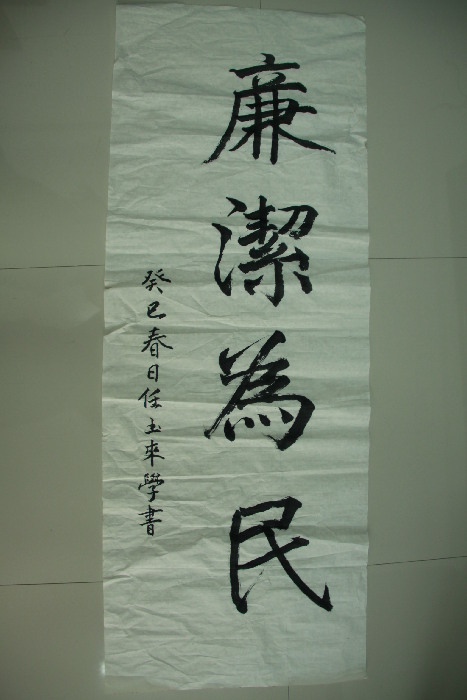 廉潔為民
癸巳春日任玉來學書